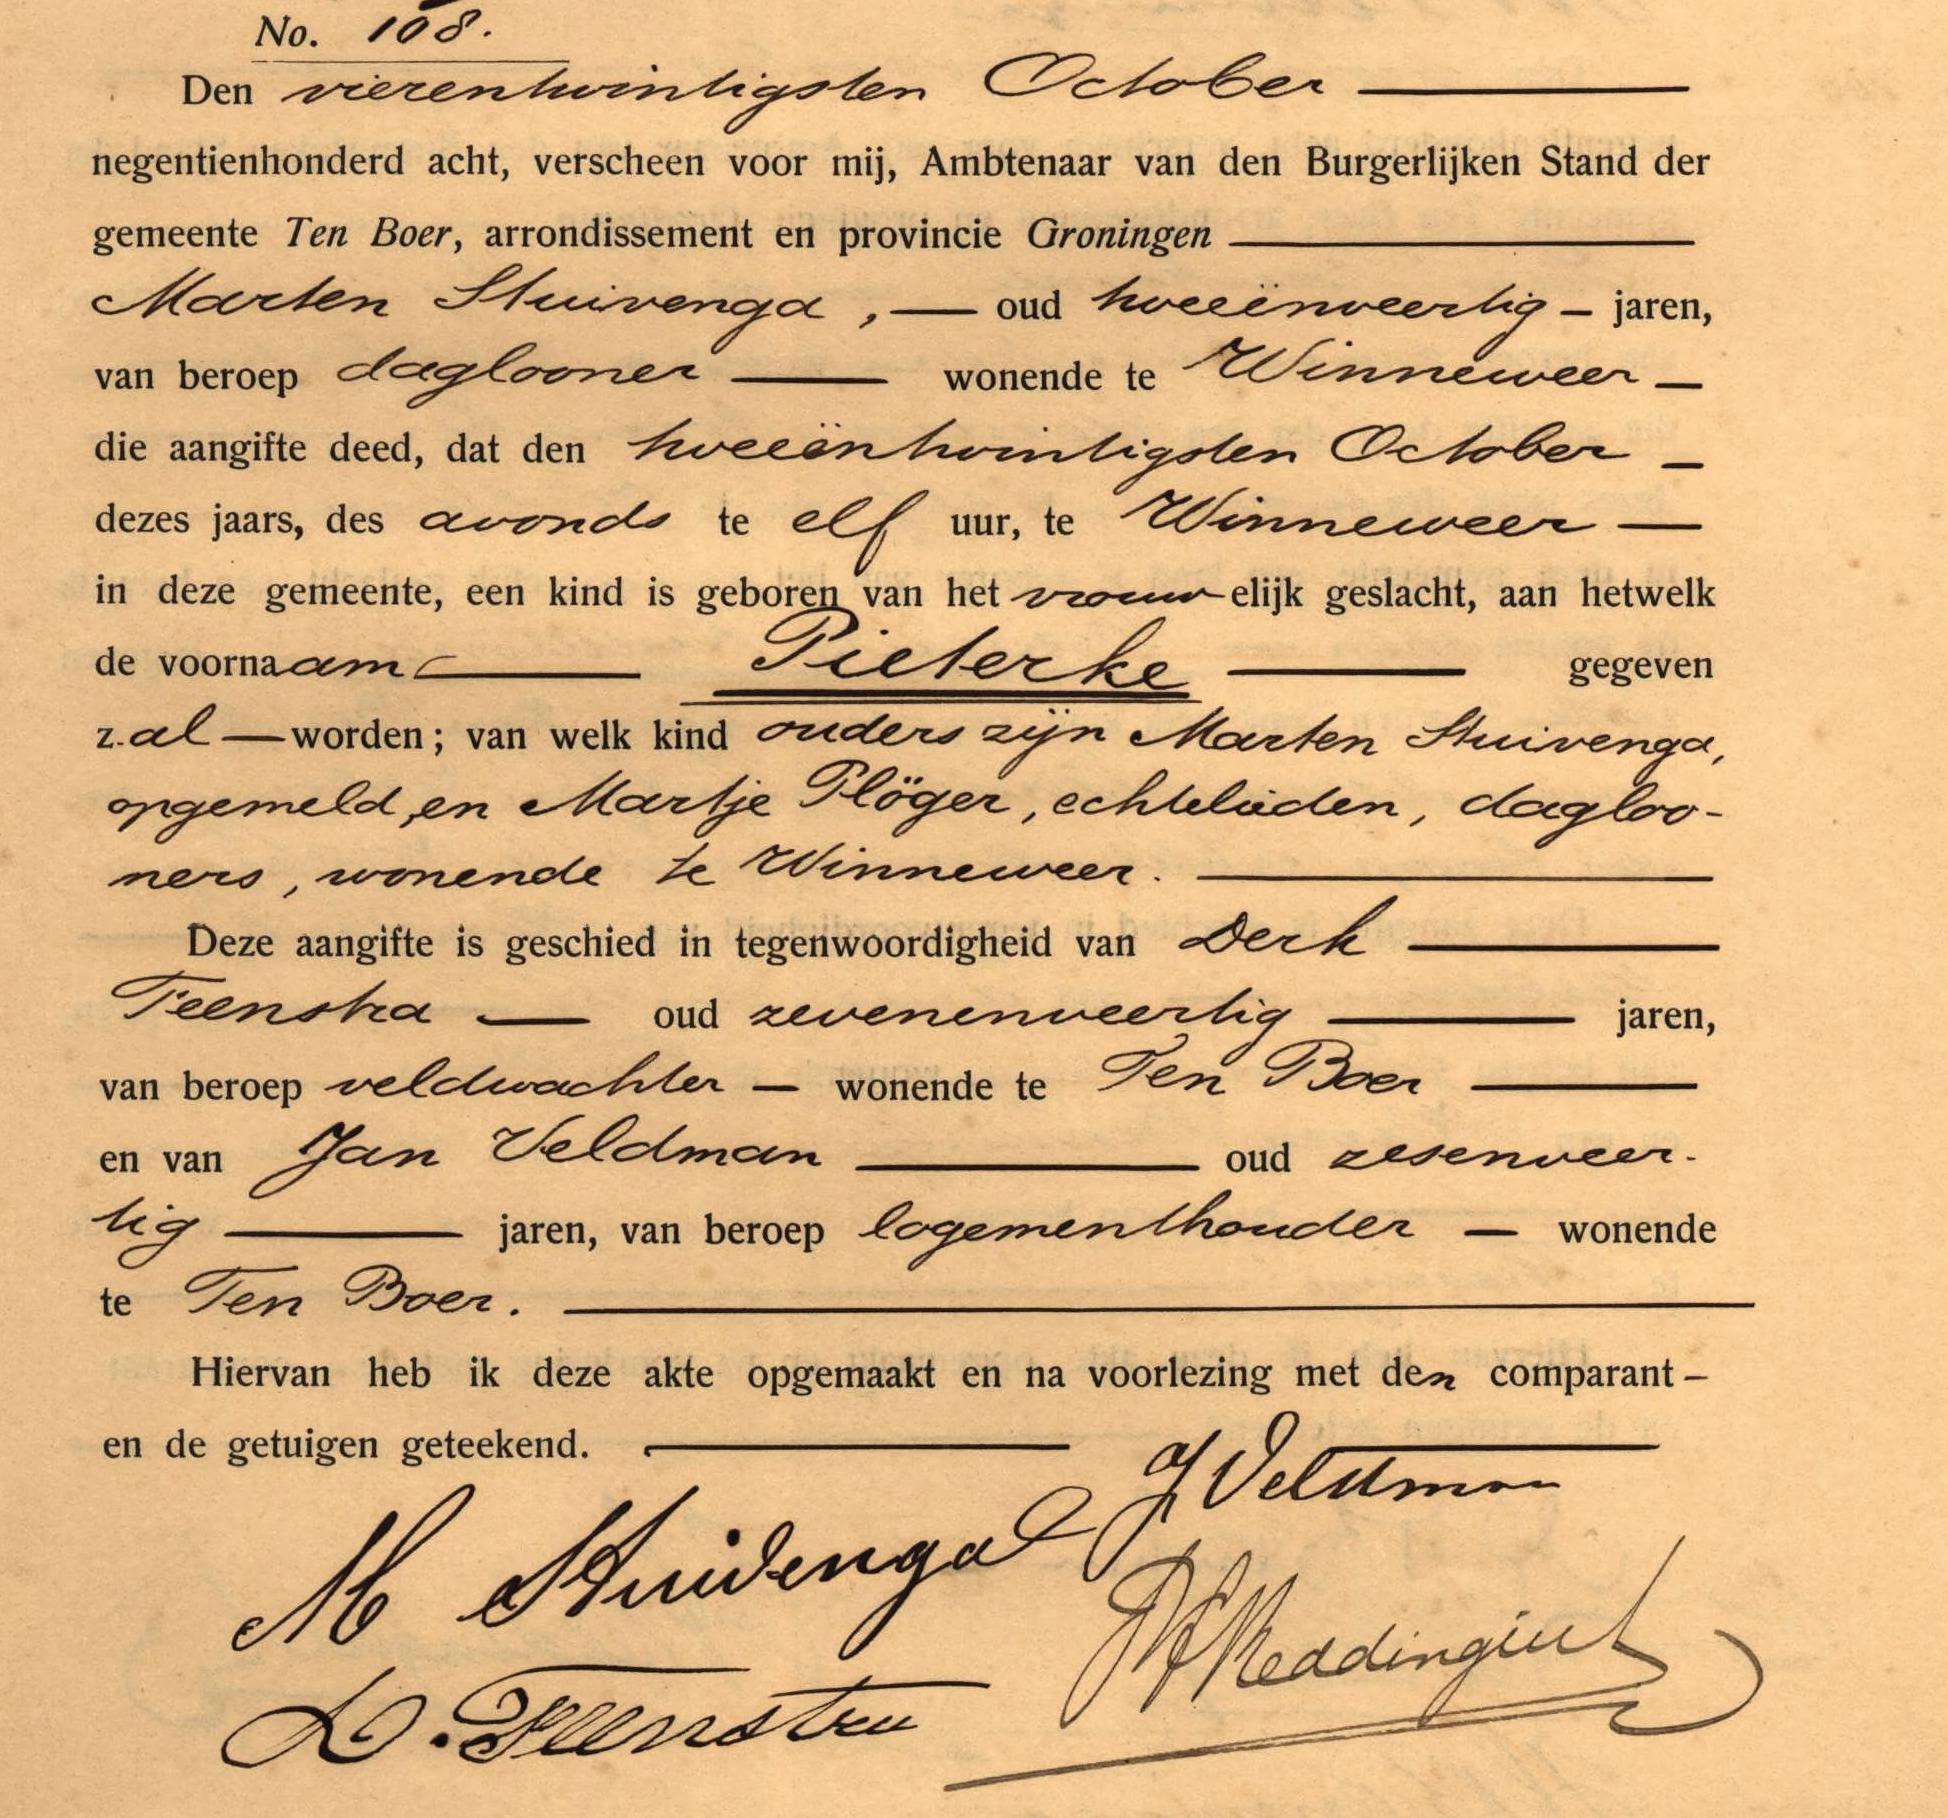 No. 108.
Den vierentwintigsten October
negentienhonderd acht, verscheen voor mij, Ambtenaar van den Burgerlijken Stand der
gemeente Ten Boer, arrondissement en provincie Groningen
Marten Stuivenga, — oud tweeënveertig — jaren,
van beroep daglooner — wonende te Winneweer —
die aangifte deed, dat den tweeëntwintigsten October —
dezes jaars, des avonds te elf uur, te Winneweer —
in deze gemeente, een kind is geboren van het vrouwelijk geslacht, aan hetwelk
de voornaam — Pieterke — gegeven
zal — worden; van welk kind ouders zijn Marten Stuivenga,
opgemeld, en Martje Plöger, echtelieden, dagloo-
ners, wonende te Winneweer. —
Deze aangifte is geschied in tegenwoordigheid van Derk —
Teenstra — oud zevenenveertig — jaren,
van beroep veldwachter — wonende te Ten Boer —
en van Jan Veldman — oud zesenveer-
tig — jaren, van beroep logementhouder — wonende
te Ten Boer. —
Hiervan heb ik deze akte opgemaakt en na voorlezing met den comparant —
en de getuigen geteekend. —
J Veldman
M Stuivenga
Reddingius
D. Teenstra